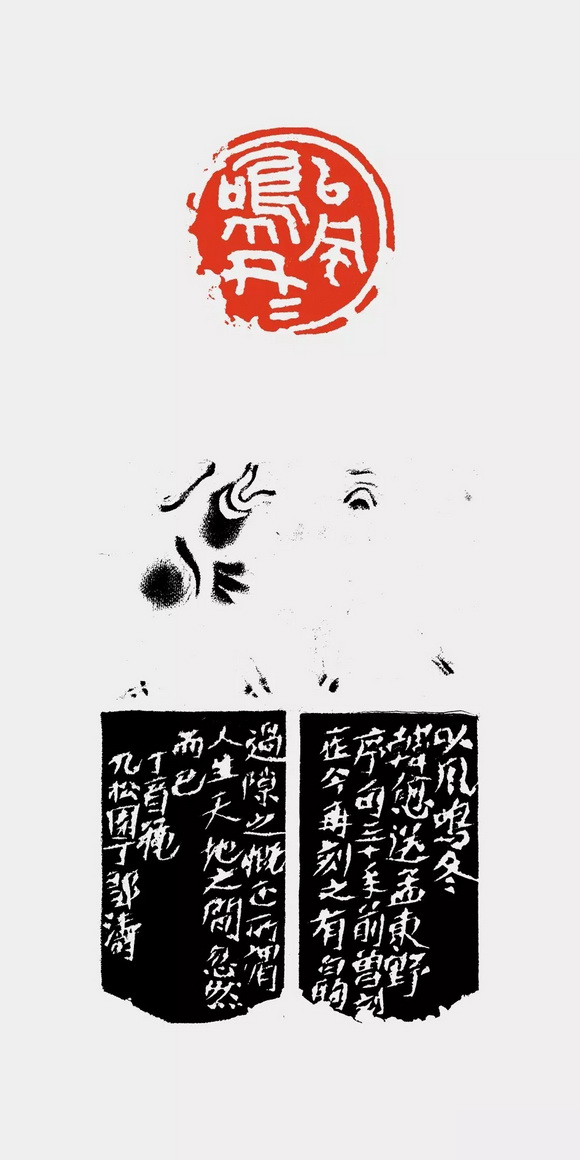 以风鸣冬
以風鳴冬
韓愈送孟東野
序句三十年前曾刻
在今再刻之有白駒
過隙之慨正所謂
人生天地之間忽然
而已
丁酉穐
九松園丁鄒濤